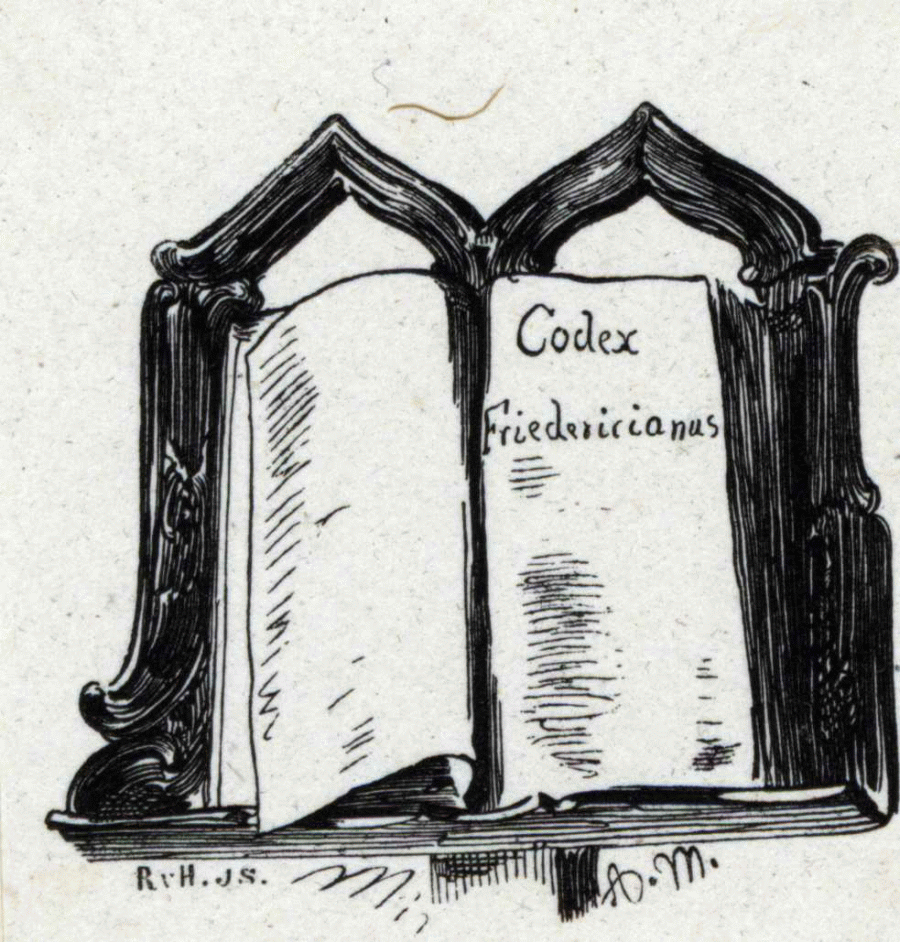 Codex
Friedericianus
RvH. JS.
A. M.